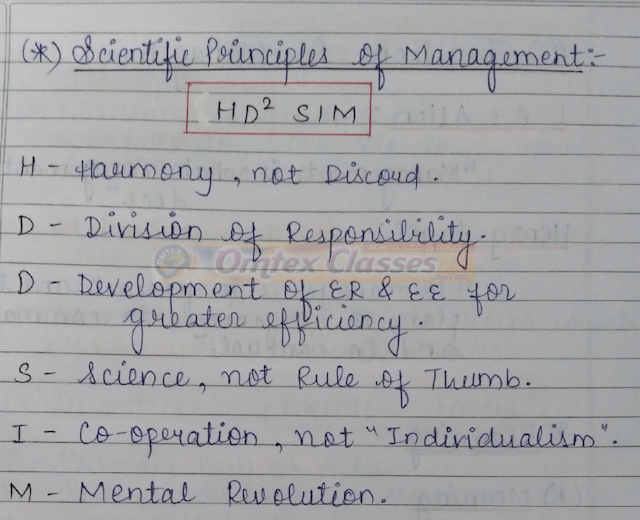 (*) Scientific Principles of Management:-
HD² SIM
H - Harmony, not Discord.
D - Division of Responsibility.
Omtex Classes
D - Development of ER & EE for
greater efficiency.
S - Science, not Rule of Thumb.
I - Co-operation, not "Individualism".
M - Mental Revolution.